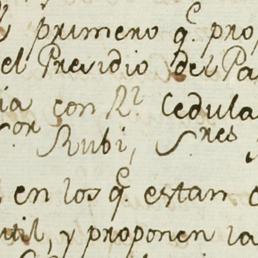 primero q.e pro
el Presidio del Pa
ia con R.l Cedula
or Rubi, S.res
, en los q.e estan
util, y proponen la